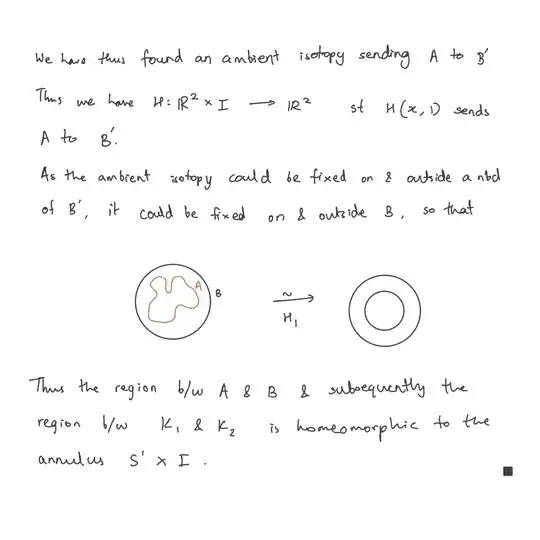 We have thus found an ambient isotopy sending A to B'
Thus we have H: ℝ² × I ⟶ ℝ² st H(x, 1) sends
A to B'.
As the ambient isotopy could be fixed on & outside a nbd
of B', it could be fixed on & outside B, so that
A B ~ H₁
Thus the region b/w A & B & subsequently the
region b/w K₁ & K₂ is homeomorphic to the
annulus S' × I.